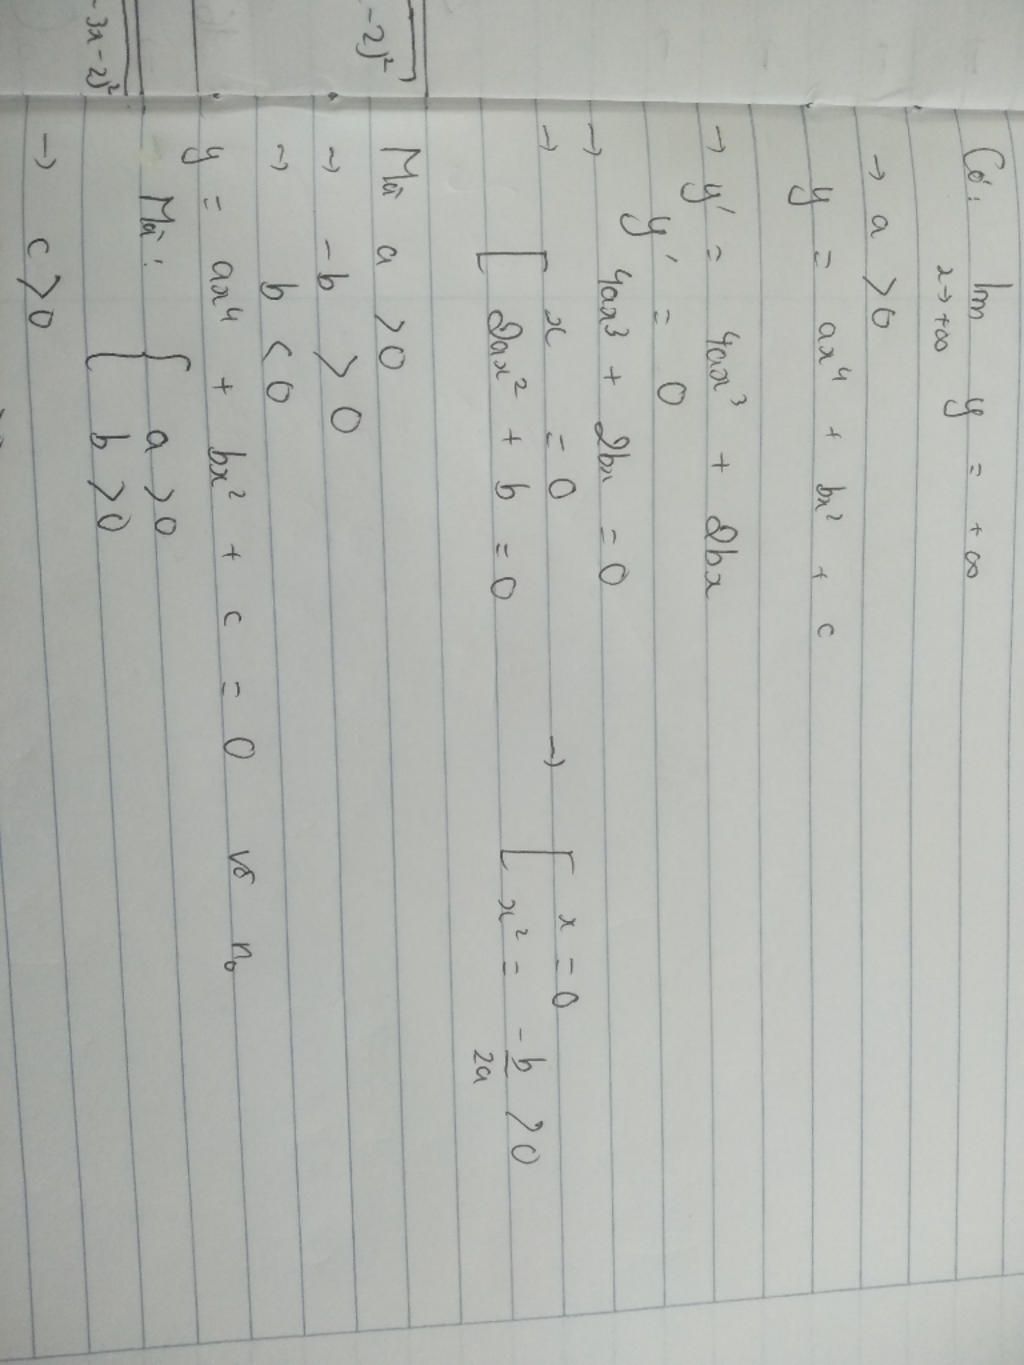 -2)²
-3x-2)²
Có: lim y = +∞
x→+∞
→ a > 0
y = ax⁴ + bx² + c
→ y' = 4ax³ + 2bx
y' = 0
→ 4ax³ + 2bx = 0
→ [ x = 0 → [ x = 0
2ax² + b = 0 x² = -b/2a > 0
Mà a > 0
→ -b > 0
→ b < 0
y = ax⁴ + bx² + c = 0 vô n₀
Mà: { a > 0
b > 0
→ c > 0